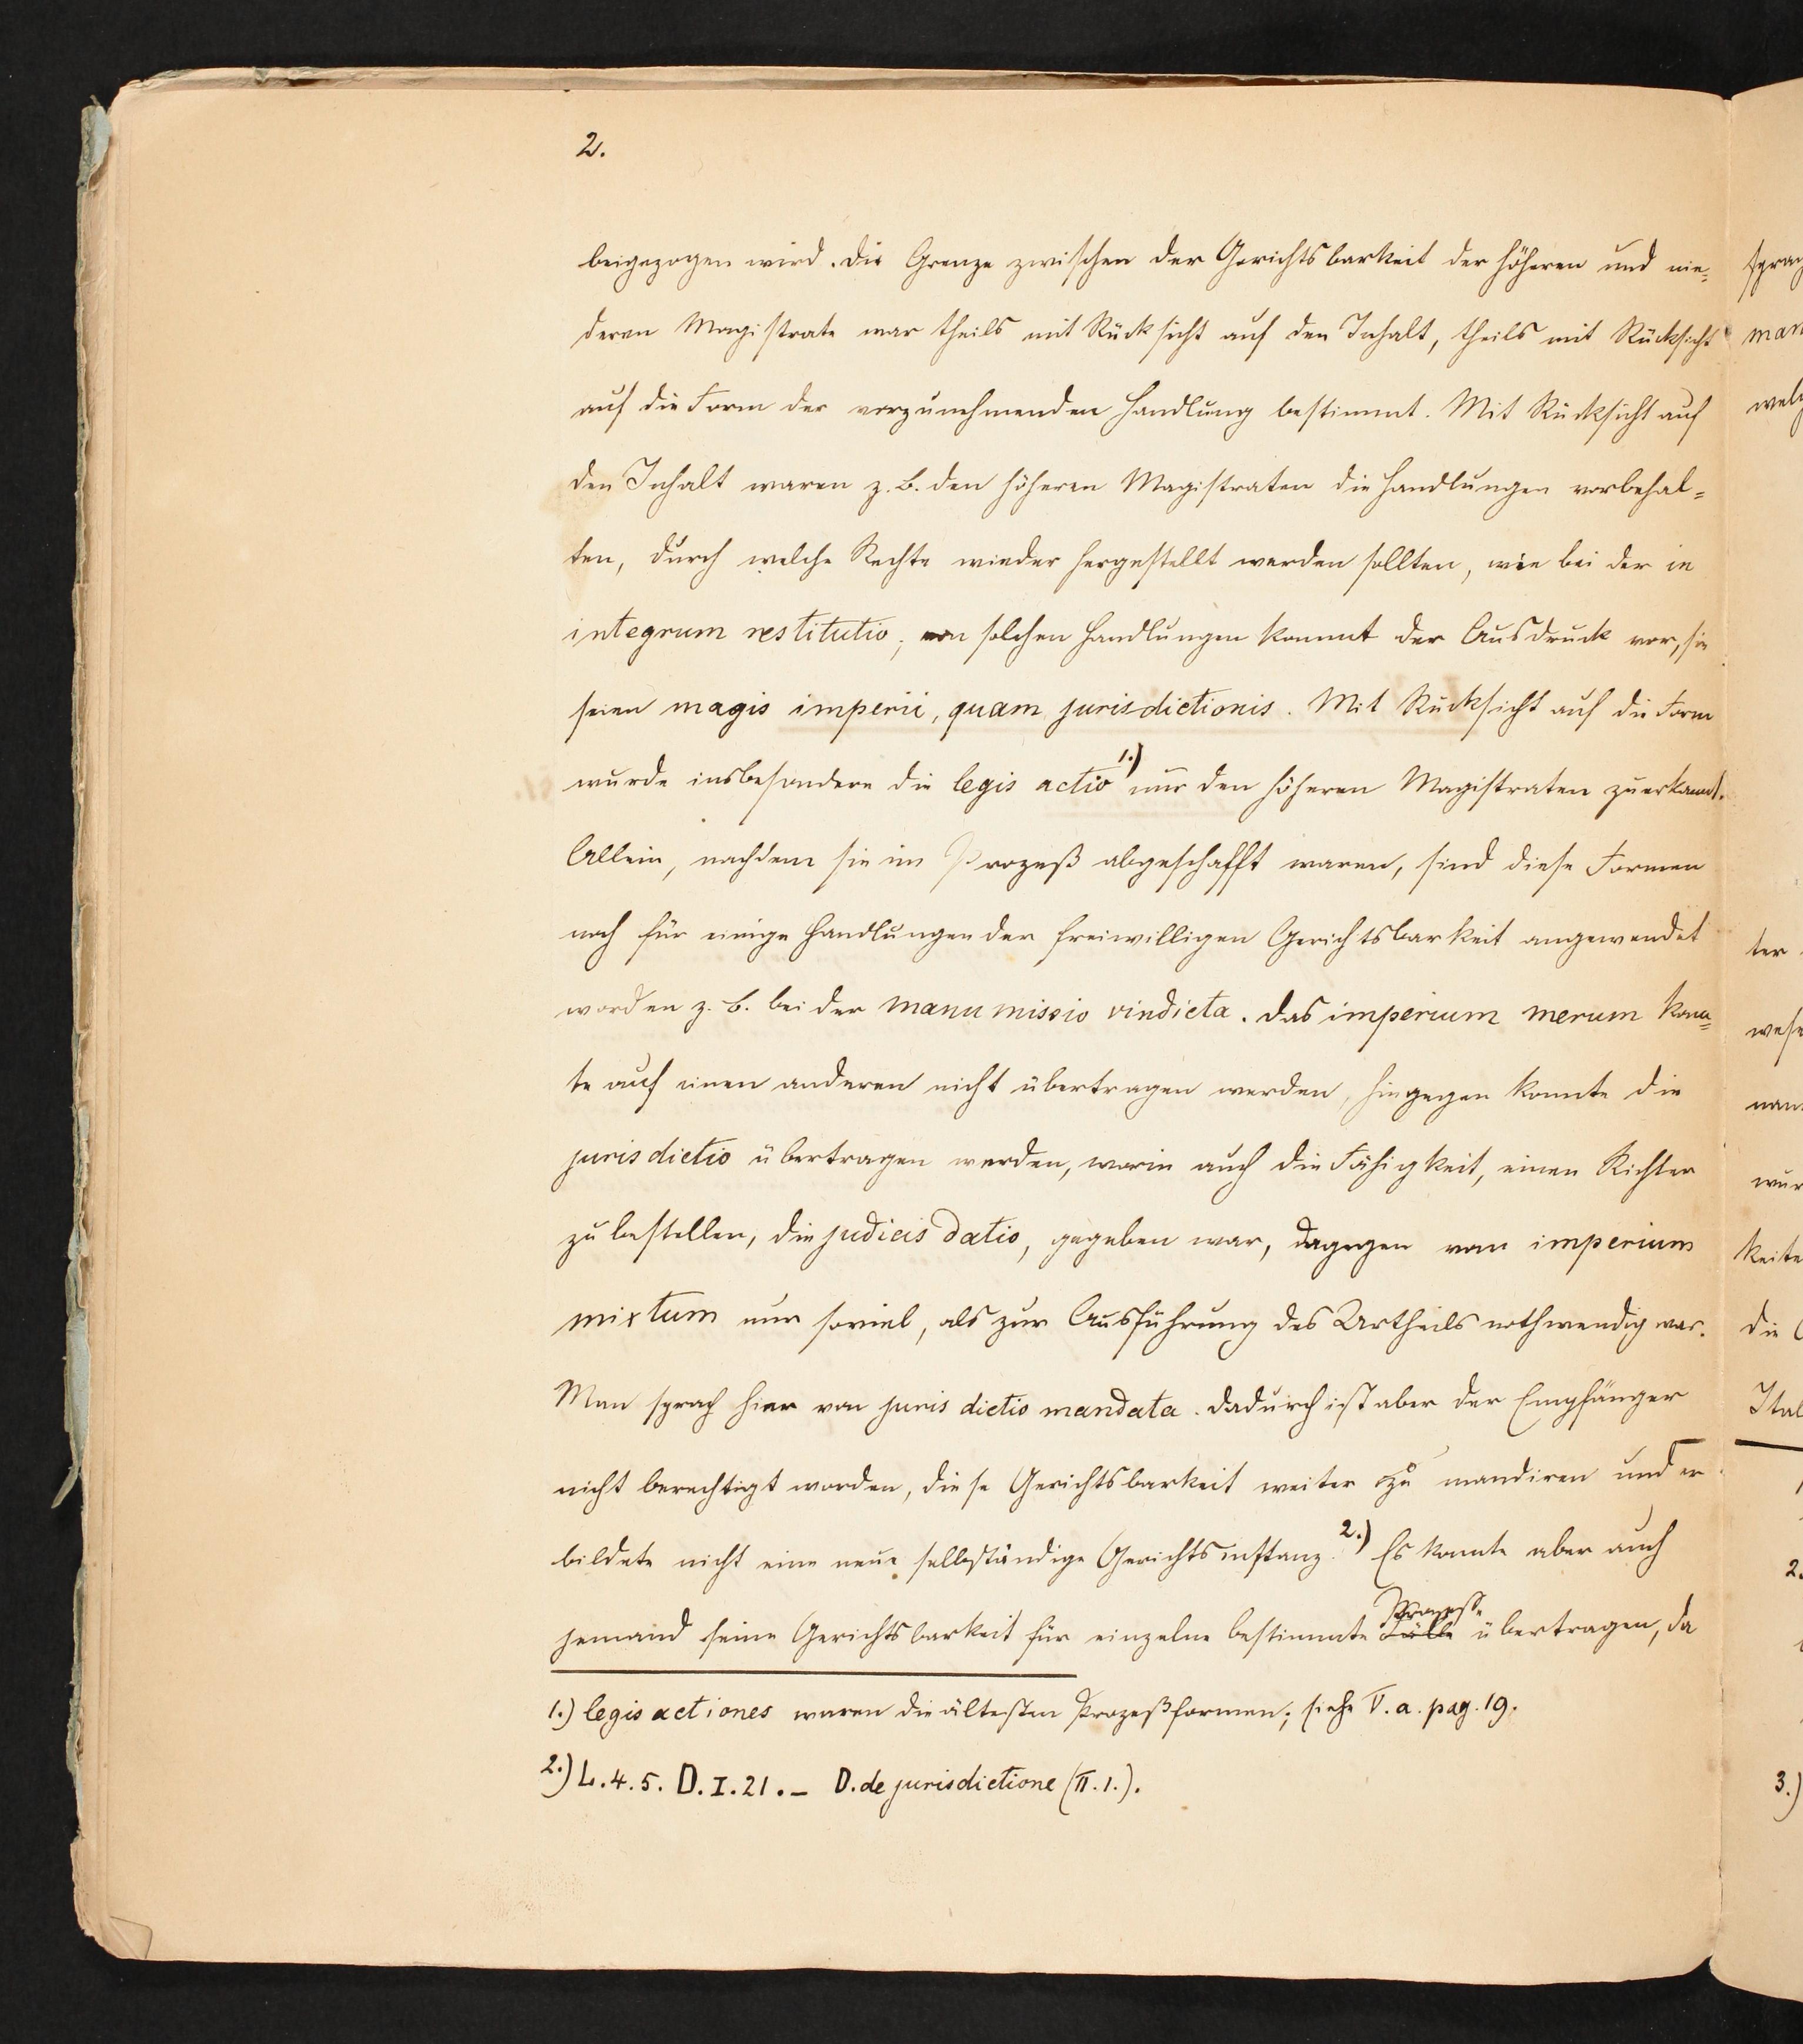 2.
beigezogen wird. Die Grenze zwischen der Gerichtsbarkeit der höheren und nie-
deren Magistrate war theils mit Rücksicht auf den Inhalt, theils mit Rücksicht
auf die Form der vorzunehmenden Handlung bestimmt. Mit Rücksicht auf
den Inhalt waren z. B. den höheren Magistraten die Handlungen vorbehal-
ten, durch welche Rechte wieder hergestellt werden sollten, wie bei der in
integrum restitutio; von solchen Handlungen kommt der Ausdruck vor, sie
seien magis imperii, quam jurisdictionis. Mit Rücksicht auf die Form
wurde insbesondere die legis actio 1.) nur den höheren Magistraten zuerkannt.
Allein, nachdem sie im Prozeß abgeschafft waren, sind diese Formen
noch für einige Handlungen der freiwilligen Gerichtsbarkeit angewendet
worden z. B. bei der manumissio vindicta. Das imperium merum konn-
te auf einen anderen nicht übertragen werden, hingegen konnte die
jurisdictio übertragen werden, worin auch die Fähigkeit, einen Richter
zu bestellen, die judicis datio, gegeben war, dagegen vom imperium
mixtum nur soviel, als zur Ausführung des Urtheils nothwendig war.
Man sprach hier von juris dictio mandata. Dadurch ist aber der Empfänger
nicht berechtigt worden, diese Gerichtsbarkeit weiter zu mandiren und er
bildete nicht eine neue selbständige Gerichtsinstanz. 2.) Es konnte aber auch
jemand seine Gerichtsbarkeit für einzelne bestimmte Fälle Prozesse übertragen, da
1.) legis actiones waren die ältesten Prozeßformen; siehe V. a. pag. 19.
2.) L. 4. 5. D. I. 21. – D. de jurisdictione (II. 1.).